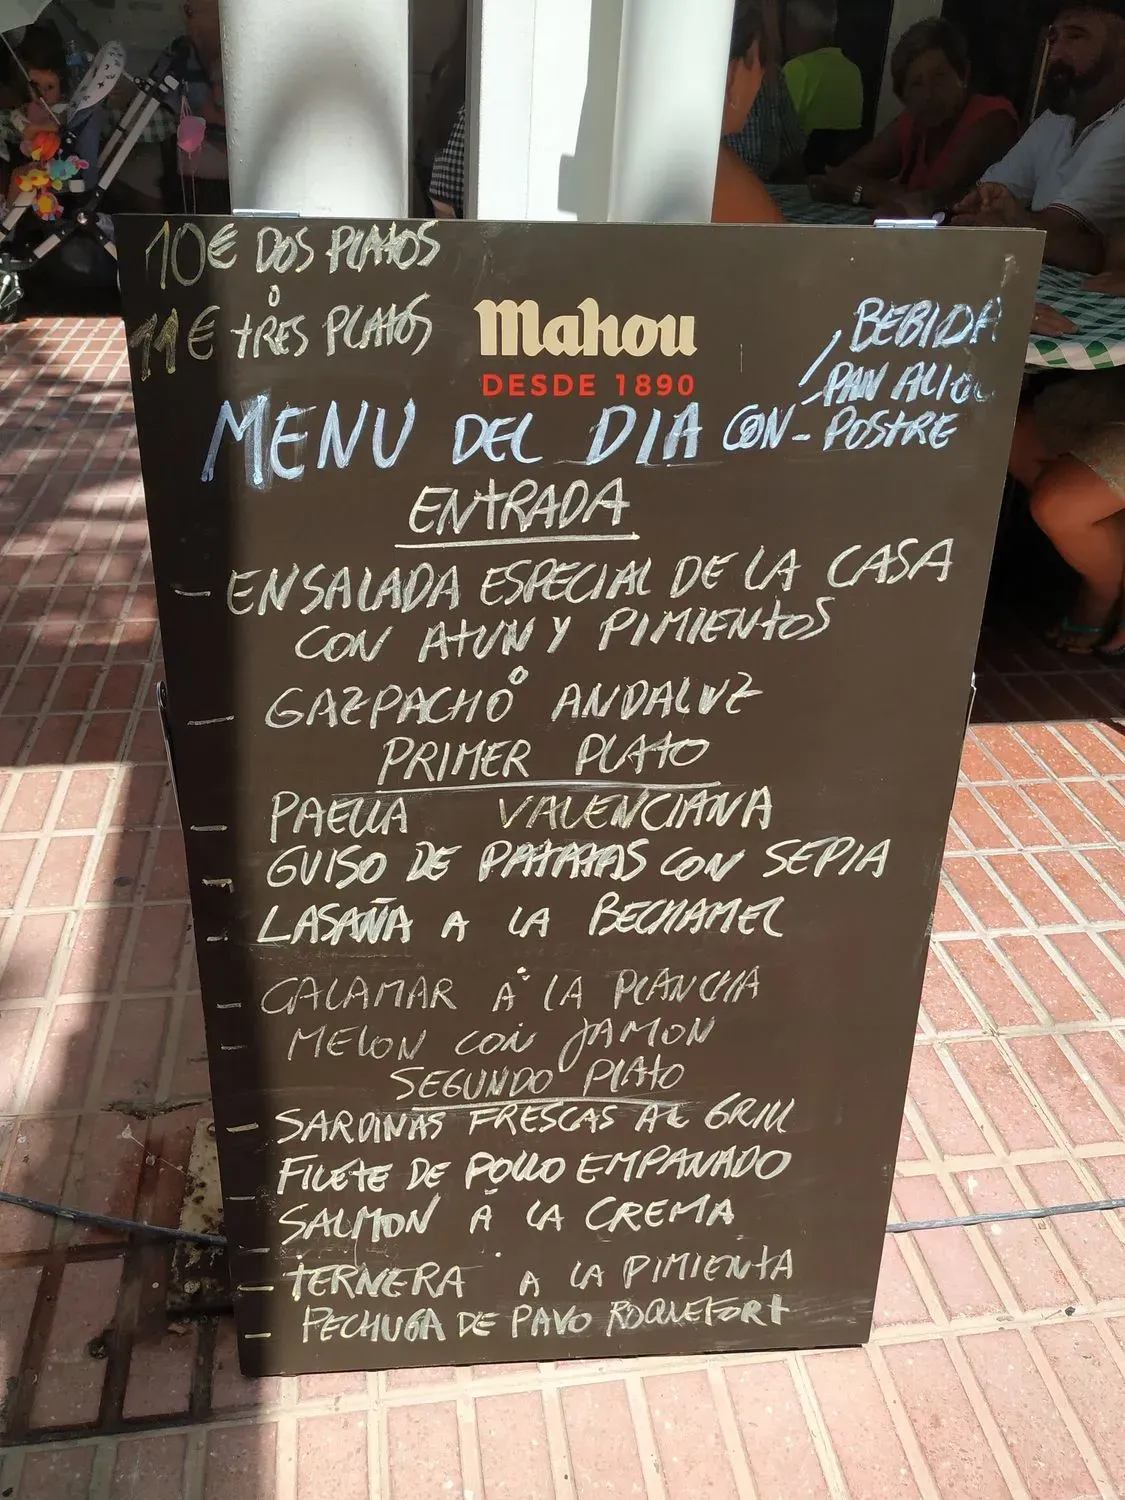 10€ DOS PLATOS
o
11€ TRES PLATOS
Mahou
DESDE 1890
BEBIDA
PAN ALIOLI
MENU DEL DIA CON - POSTRE
ENTRADA
- ENSALADA ESPECIAL DE LA CASA
CON ATUN Y PIMIENTOS
o
- GAZPACHO ANDALUZ
PRIMER PLATO
- PAELLA VALENCIANA
- GUISO DE PATATAS CON SEPIA
- LASAÑA A LA BECHAMEL
- CALAMAR A LA PLANCHA
- MELON CON JAMON
SEGUNDO PLATO
- SARDINAS FRESCAS AL GRILL
- FILETE DE POLLO EMPANADO
- SALMON A LA CREMA
- TERNERA A LA PIMIENTA
- PECHUGA DE PAVO ROQUEFORT